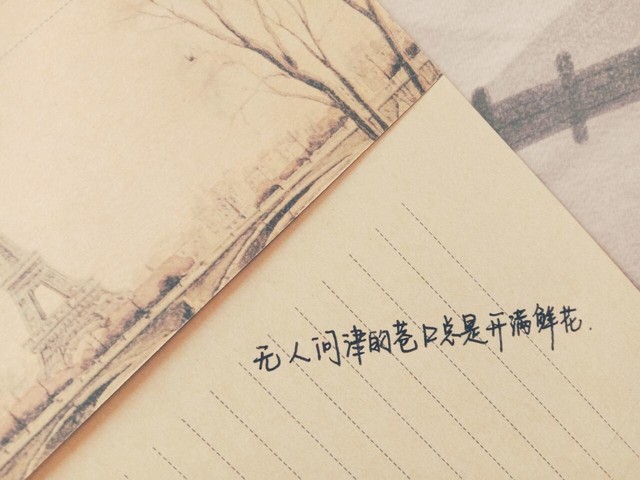 无人问津的巷口总是开满鲜花.